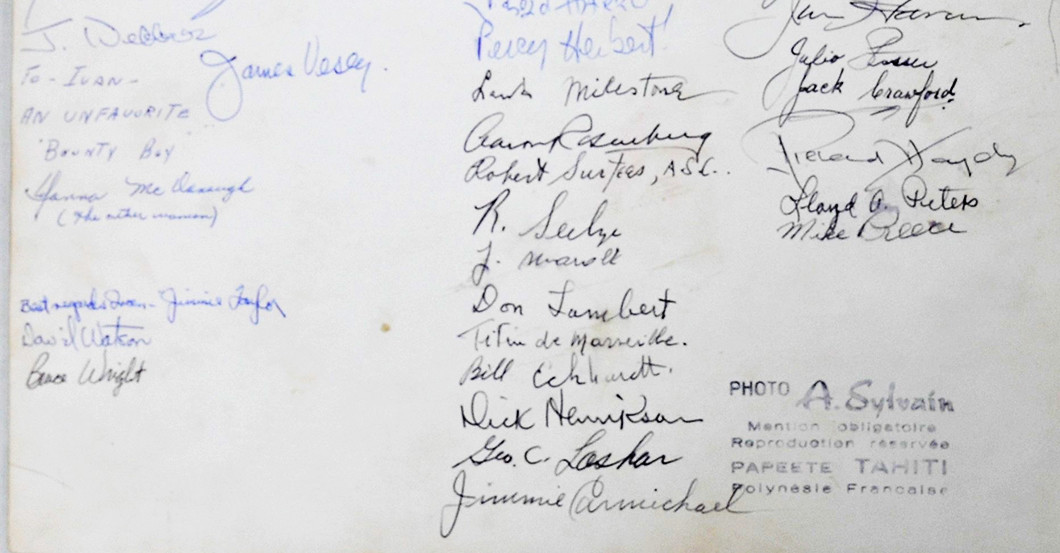 James Vesey.
TO - IVAN -
AN UNFAVORITE
"BOUNTY BOY
(The other woman)
Best regards - Jimmie Taylor
David Watson
Bruce Wright
Percy Herbert!
Lewis Milestone
Aaron Rosenberg
Robert Surtees, A.S.C..
R. Seelye
J.
Don Lambert
Titin de Marseille.
Bill Eckhardt.
Dick Henrikson
Geo. C.
Jimmie Carmichael
Jack Crawford
Richard Haydn
Lloyd A. Peters
Mike Breece
PHOTO A. Sylvain
Mention obligatoire
Reproduction réservée
PAPEETE TAHITI
Polynésie Française